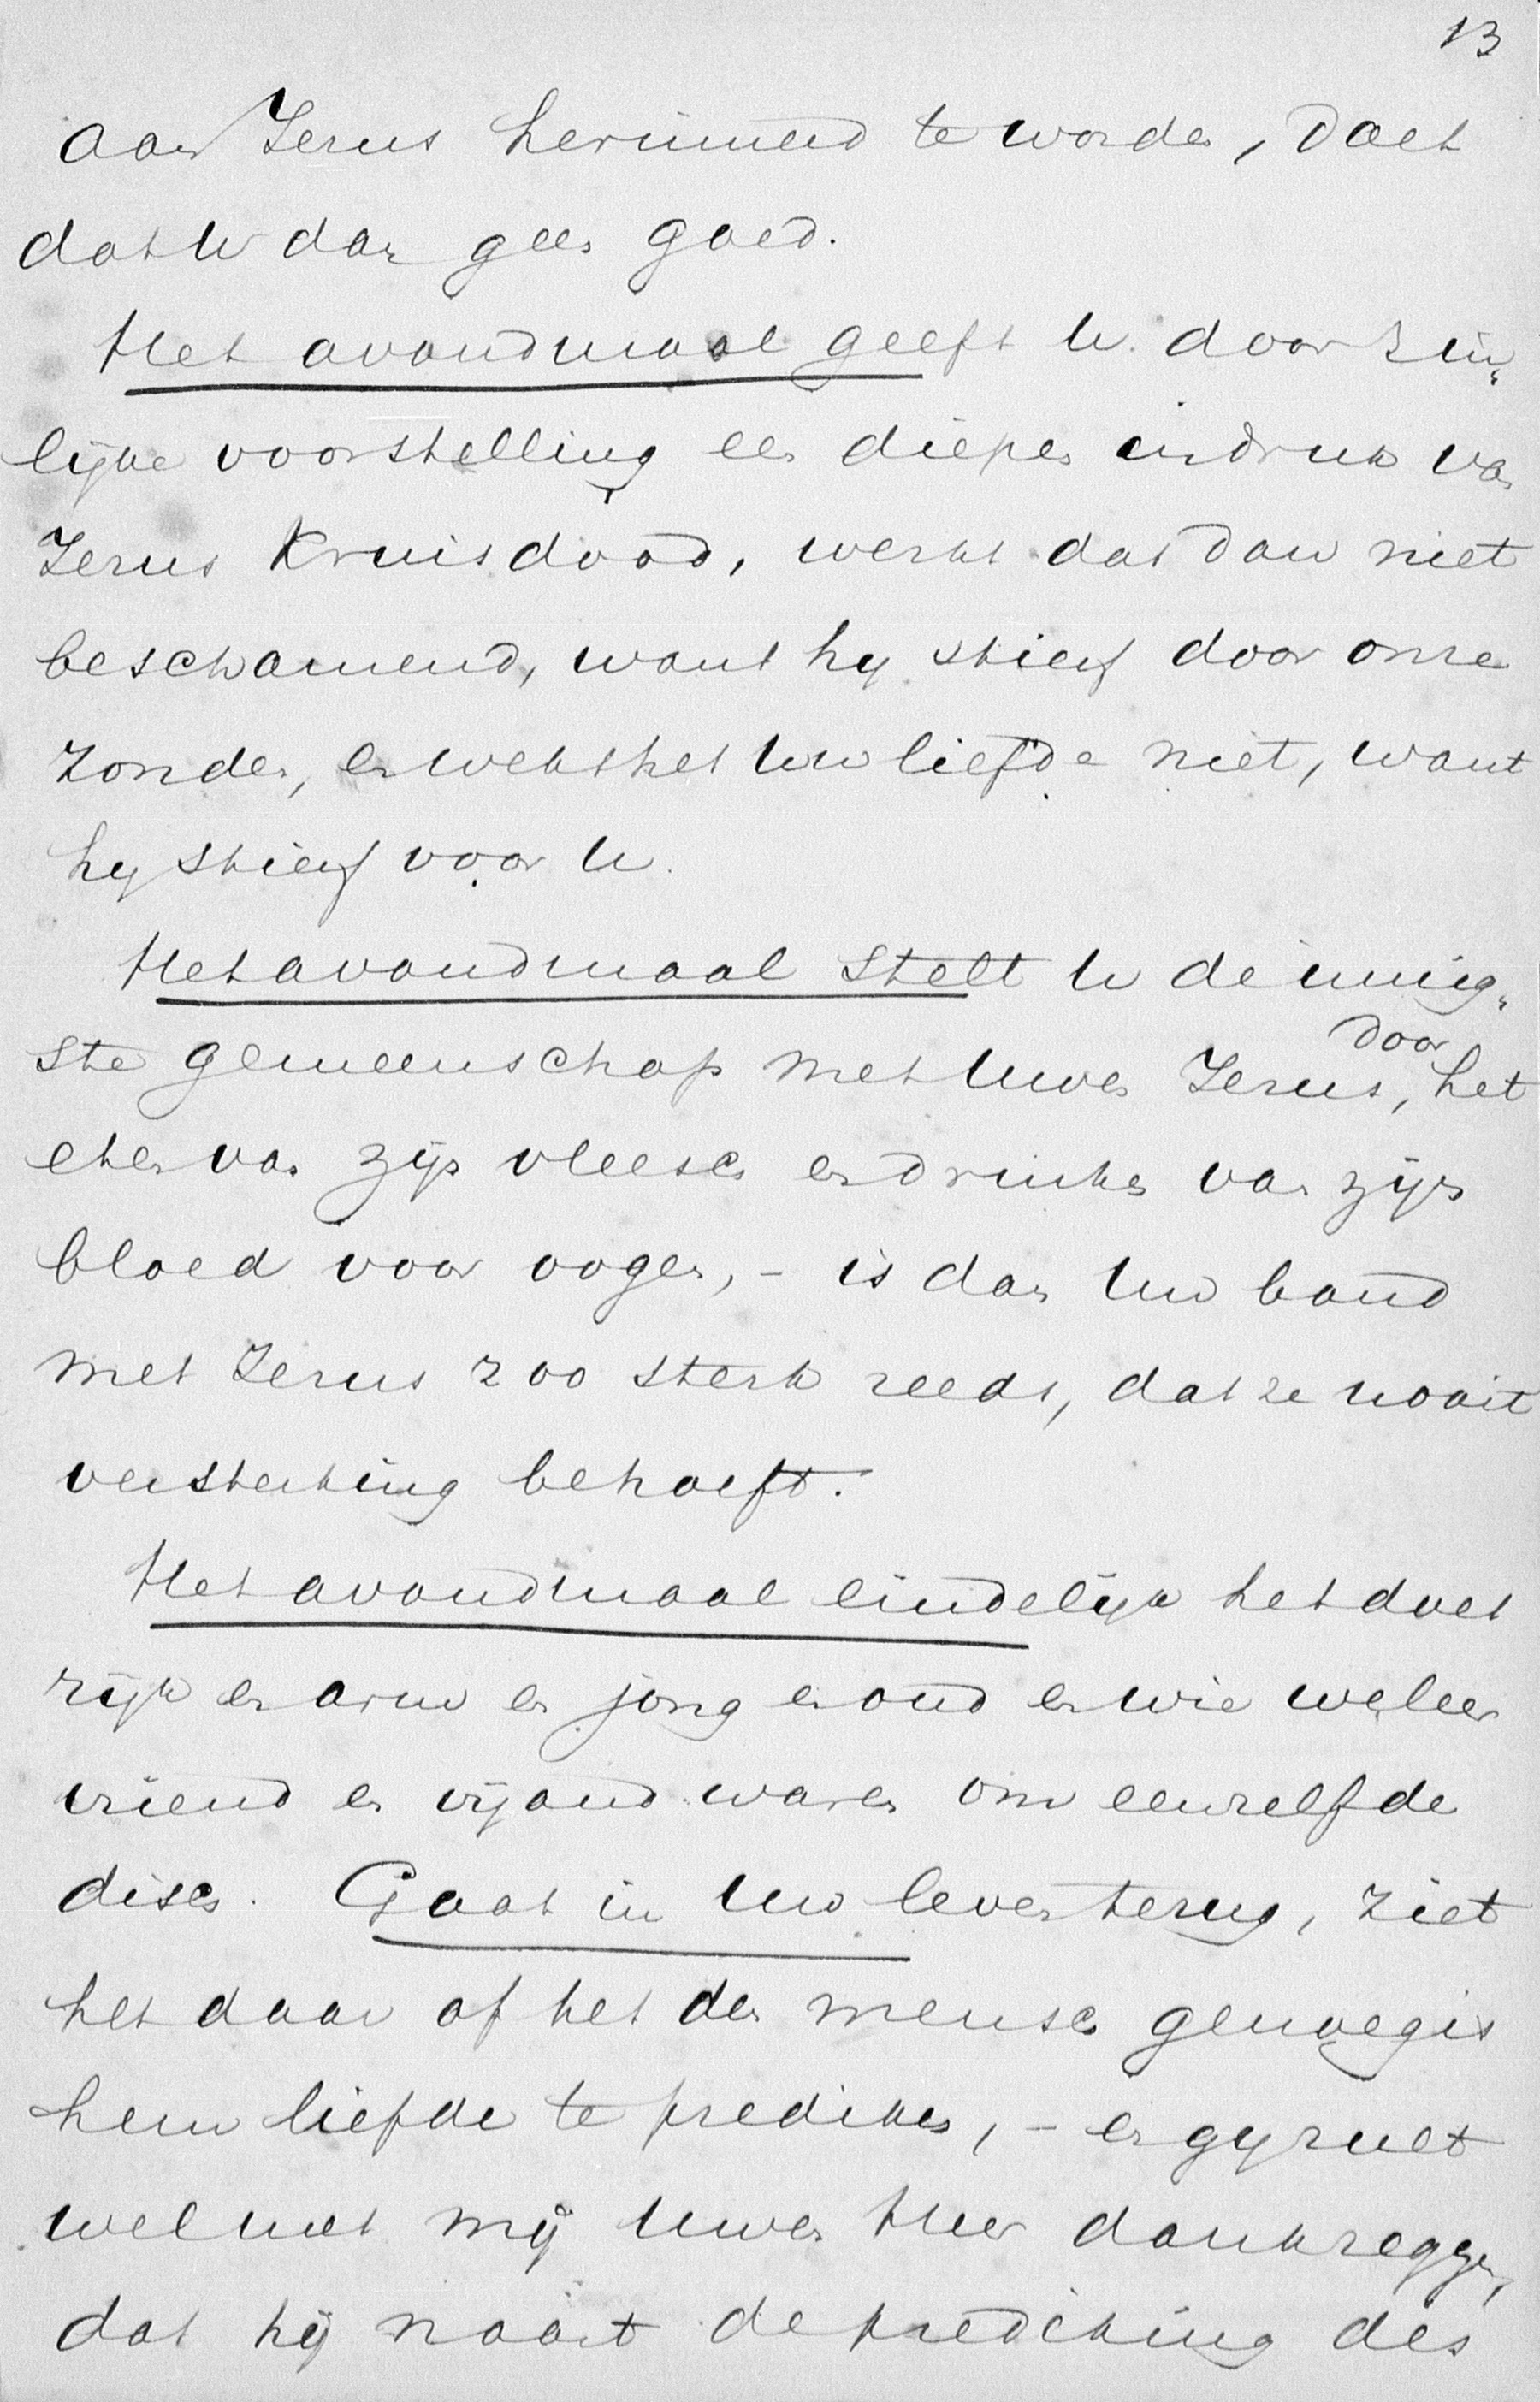 13
aan Jezus herinnerd te worden, doet
dat U dan geen goed.
Het avondmaal geeft U door zin„
lijke voorstelling een diepen indruk van
Jezus Kruisdood, werkt dat dan niet
beschamend, want hy stierf door onze
zonden, en wekt het Uw liefde niet, want
hy stierf voor U.
Het avondmaal stelt U de innig„
ste gemeenschap met Uwen Jezus, door het
eten van zijn vleesch en drinken van zijn
bloed voor oogen, – is dan Uw band
met Jezus zoo sterk reeds, dat ze nooit
versterking behoeft.
Het avondmaal eindelijk het doet
rijk en arm en jong en oud en wie weleer
vriend en vijand waren om eenzelfde
disch. Gaat in Uw leven terug, ziet
het daar of het den mensch genoeg is
hem liefde te prediken, – en gy zult
wel met mij Uwen Heer dankzeggen,
dat hij naast de prediking des